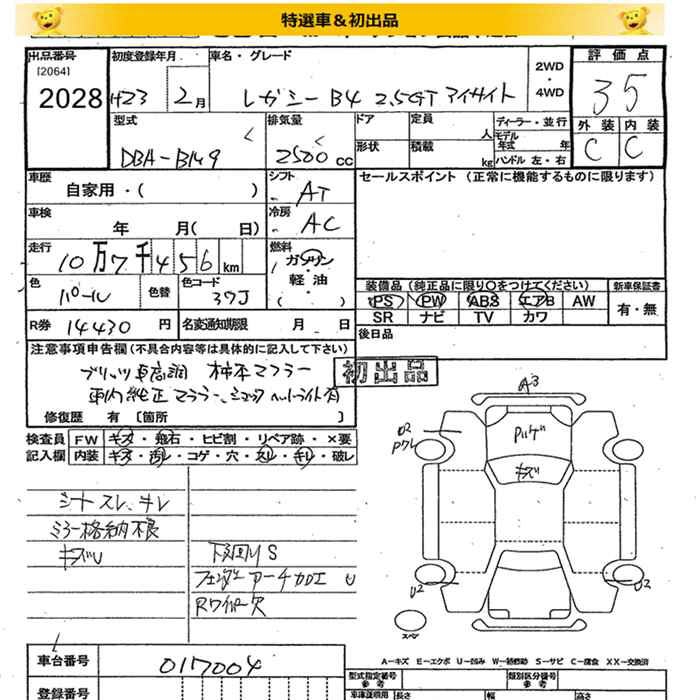 特選車＆初出品
出品番号 初度登録年月 車名・グレード 2WD・4WD 評価点
[2064]
2028 H23 2月 レガシーB4 2.5GT アイサイト 35
型式 排気量 ドア 定員 人 ディーラー・並行 外装 内装
DBA-BM9 2500cc 形状 積載 kg モデル年式 年 ハンドル 左・右 C C
車歴 シフト セールスポイント (正常に機能するものに限ります)
自家用・( ) AT
車検 冷房
年 月( 日) AC
走行 燃料
10万7千456km ガソリン
色 色替 色コード 軽・油 装備品(純正品に限り○をつけてください) 新車保証書
パール 37J ( ・ ) PS PW ABS エアB AW 有・無
SR ナビ TV カワ
R券 14430円 名変通知期限 月 日 後日品
注意事項申告欄(不具合内容等は具体的に記入して下さい)
ブリッツ車高調 柿本マフラー 初出品
車内純正マフラー、ショック ヘットライト有
修復歴 有 [箇所 ]
検査員 FW キズ・飛石・ヒビ割・リペア跡・×要
記入欄 内装 キズ・汚レ・コゲ・穴・スレ・キレ・破レ
シートスレ、キレ
ミラー格納不良
キズU 下回りS
フェンダーアーチ加工 U
Rワイパー欠
A3
U2
Pクレ
キズ
U2
U2
スペア
A－キズ E－エクボ U－凹み W－補修跡 S－サビ C－腐食 XX－交換済
車台番号 017004 型式指定番号 参考 類別区分番号 参考
登録番号 車検証用 長さ 幅 高さ